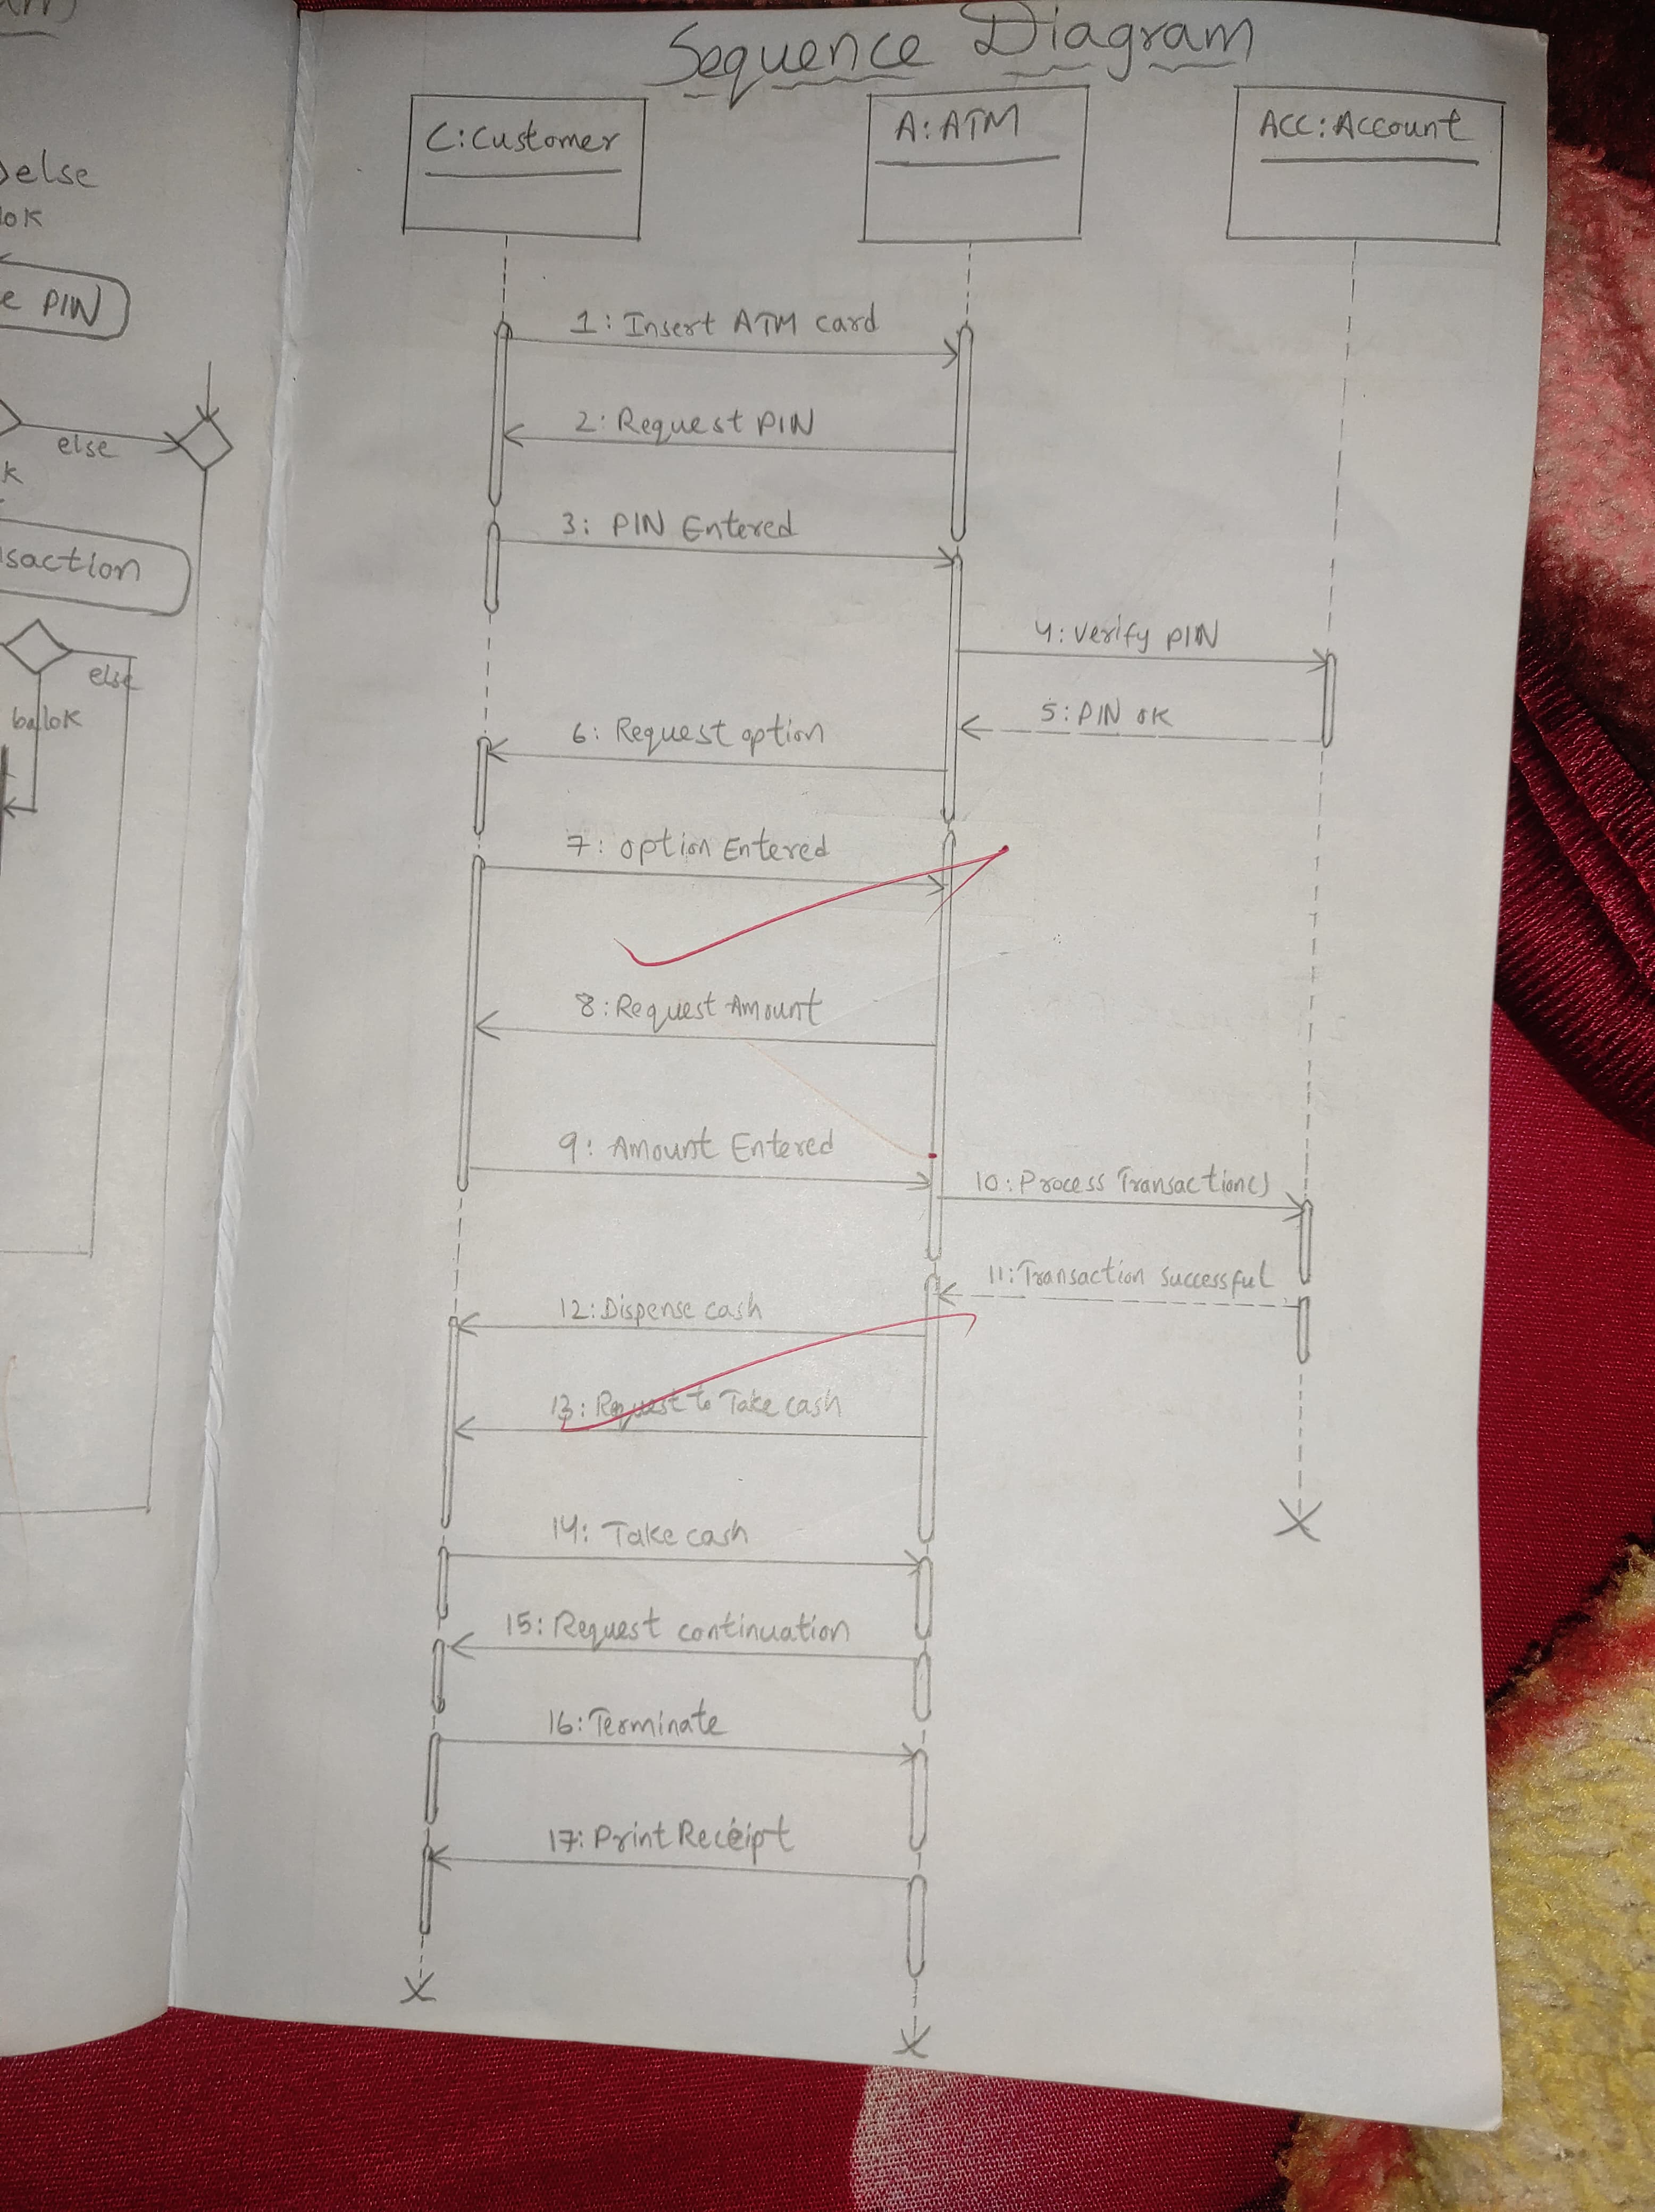 else
lok
e PIN
else
k
saction
else
balok
Sequence Diagram
C:Customer
A:ATM
ACC:Account
1: Insert ATM card
2: Request PIN
3: PIN Entered
4: Verify PIN
5: PIN OK
6: Request option
7: option Entered
8: Request Amount
9: Amount Entered
10: Process Transaction()
11: Transaction successful
12: Dispense cash
13: Request to Take cash
14: Take cash
15: Request continuation
16: Terminate
17: Print Receipt